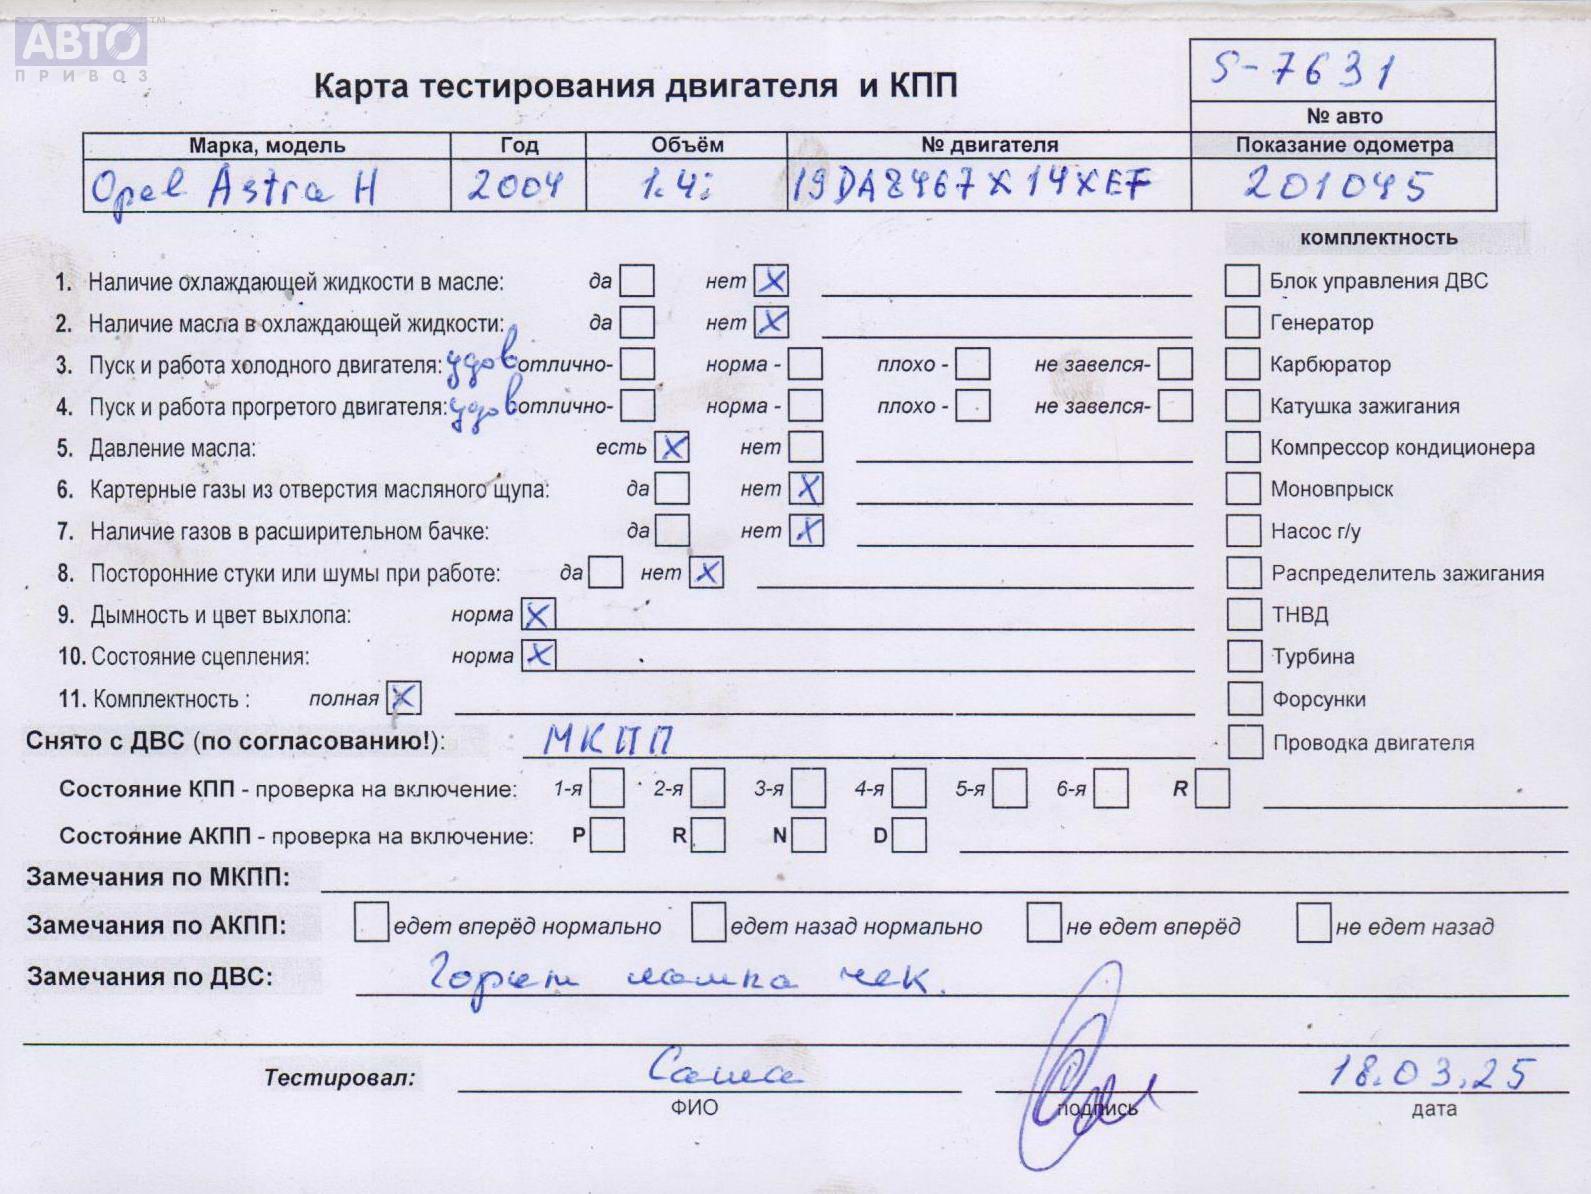 АВТО™
ПРИВОЗ
S-7631
Карта тестирования двигателя и КПП
№ авто
Марка, модель Год Объём № двигателя Показание одометра
Opel Astra H 2004 1.4i 19DA8467 X14XEF 201045
комплектность
1. Наличие охлаждающей жидкости в масле: да нет X Блок управления ДВС
2. Наличие масла в охлаждающей жидкости: да нет X Генератор
3. Пуск и работа холодного двигателя: удов отлично- норма - плохо - не завелся- Карбюратор
4. Пуск и работа прогретого двигателя: удов отлично- норма - плохо - не завелся- Катушка зажигания
5. Давление масла: есть X нет Компрессор кондиционера
6. Картерные газы из отверстия масляного щупа: да нет X Моновпрыск
7. Наличие газов в расширительном бачке: да нет X Насос г/у
8. Посторонние стуки или шумы при работе: да нет X Распределитель зажигания
9. Дымность и цвет выхлопа: норма X ТНВД
10. Состояние сцепления: норма X Турбина
11. Комплектность : полная X Форсунки
Снято с ДВС (по согласованию!): МКПП Проводка двигателя
Состояние КПП - проверка на включение: 1-я 2-я 3-я 4-я 5-я 6-я R
Состояние АКПП - проверка на включение: P R N D
Замечания по МКПП:
Замечания по АКПП: едет вперёд нормально едет назад нормально не едет вперёд не едет назад
Замечания по ДВС: Горит лампа чек.
Тестировал: Саша 18.03.25
ФИО подпись дата